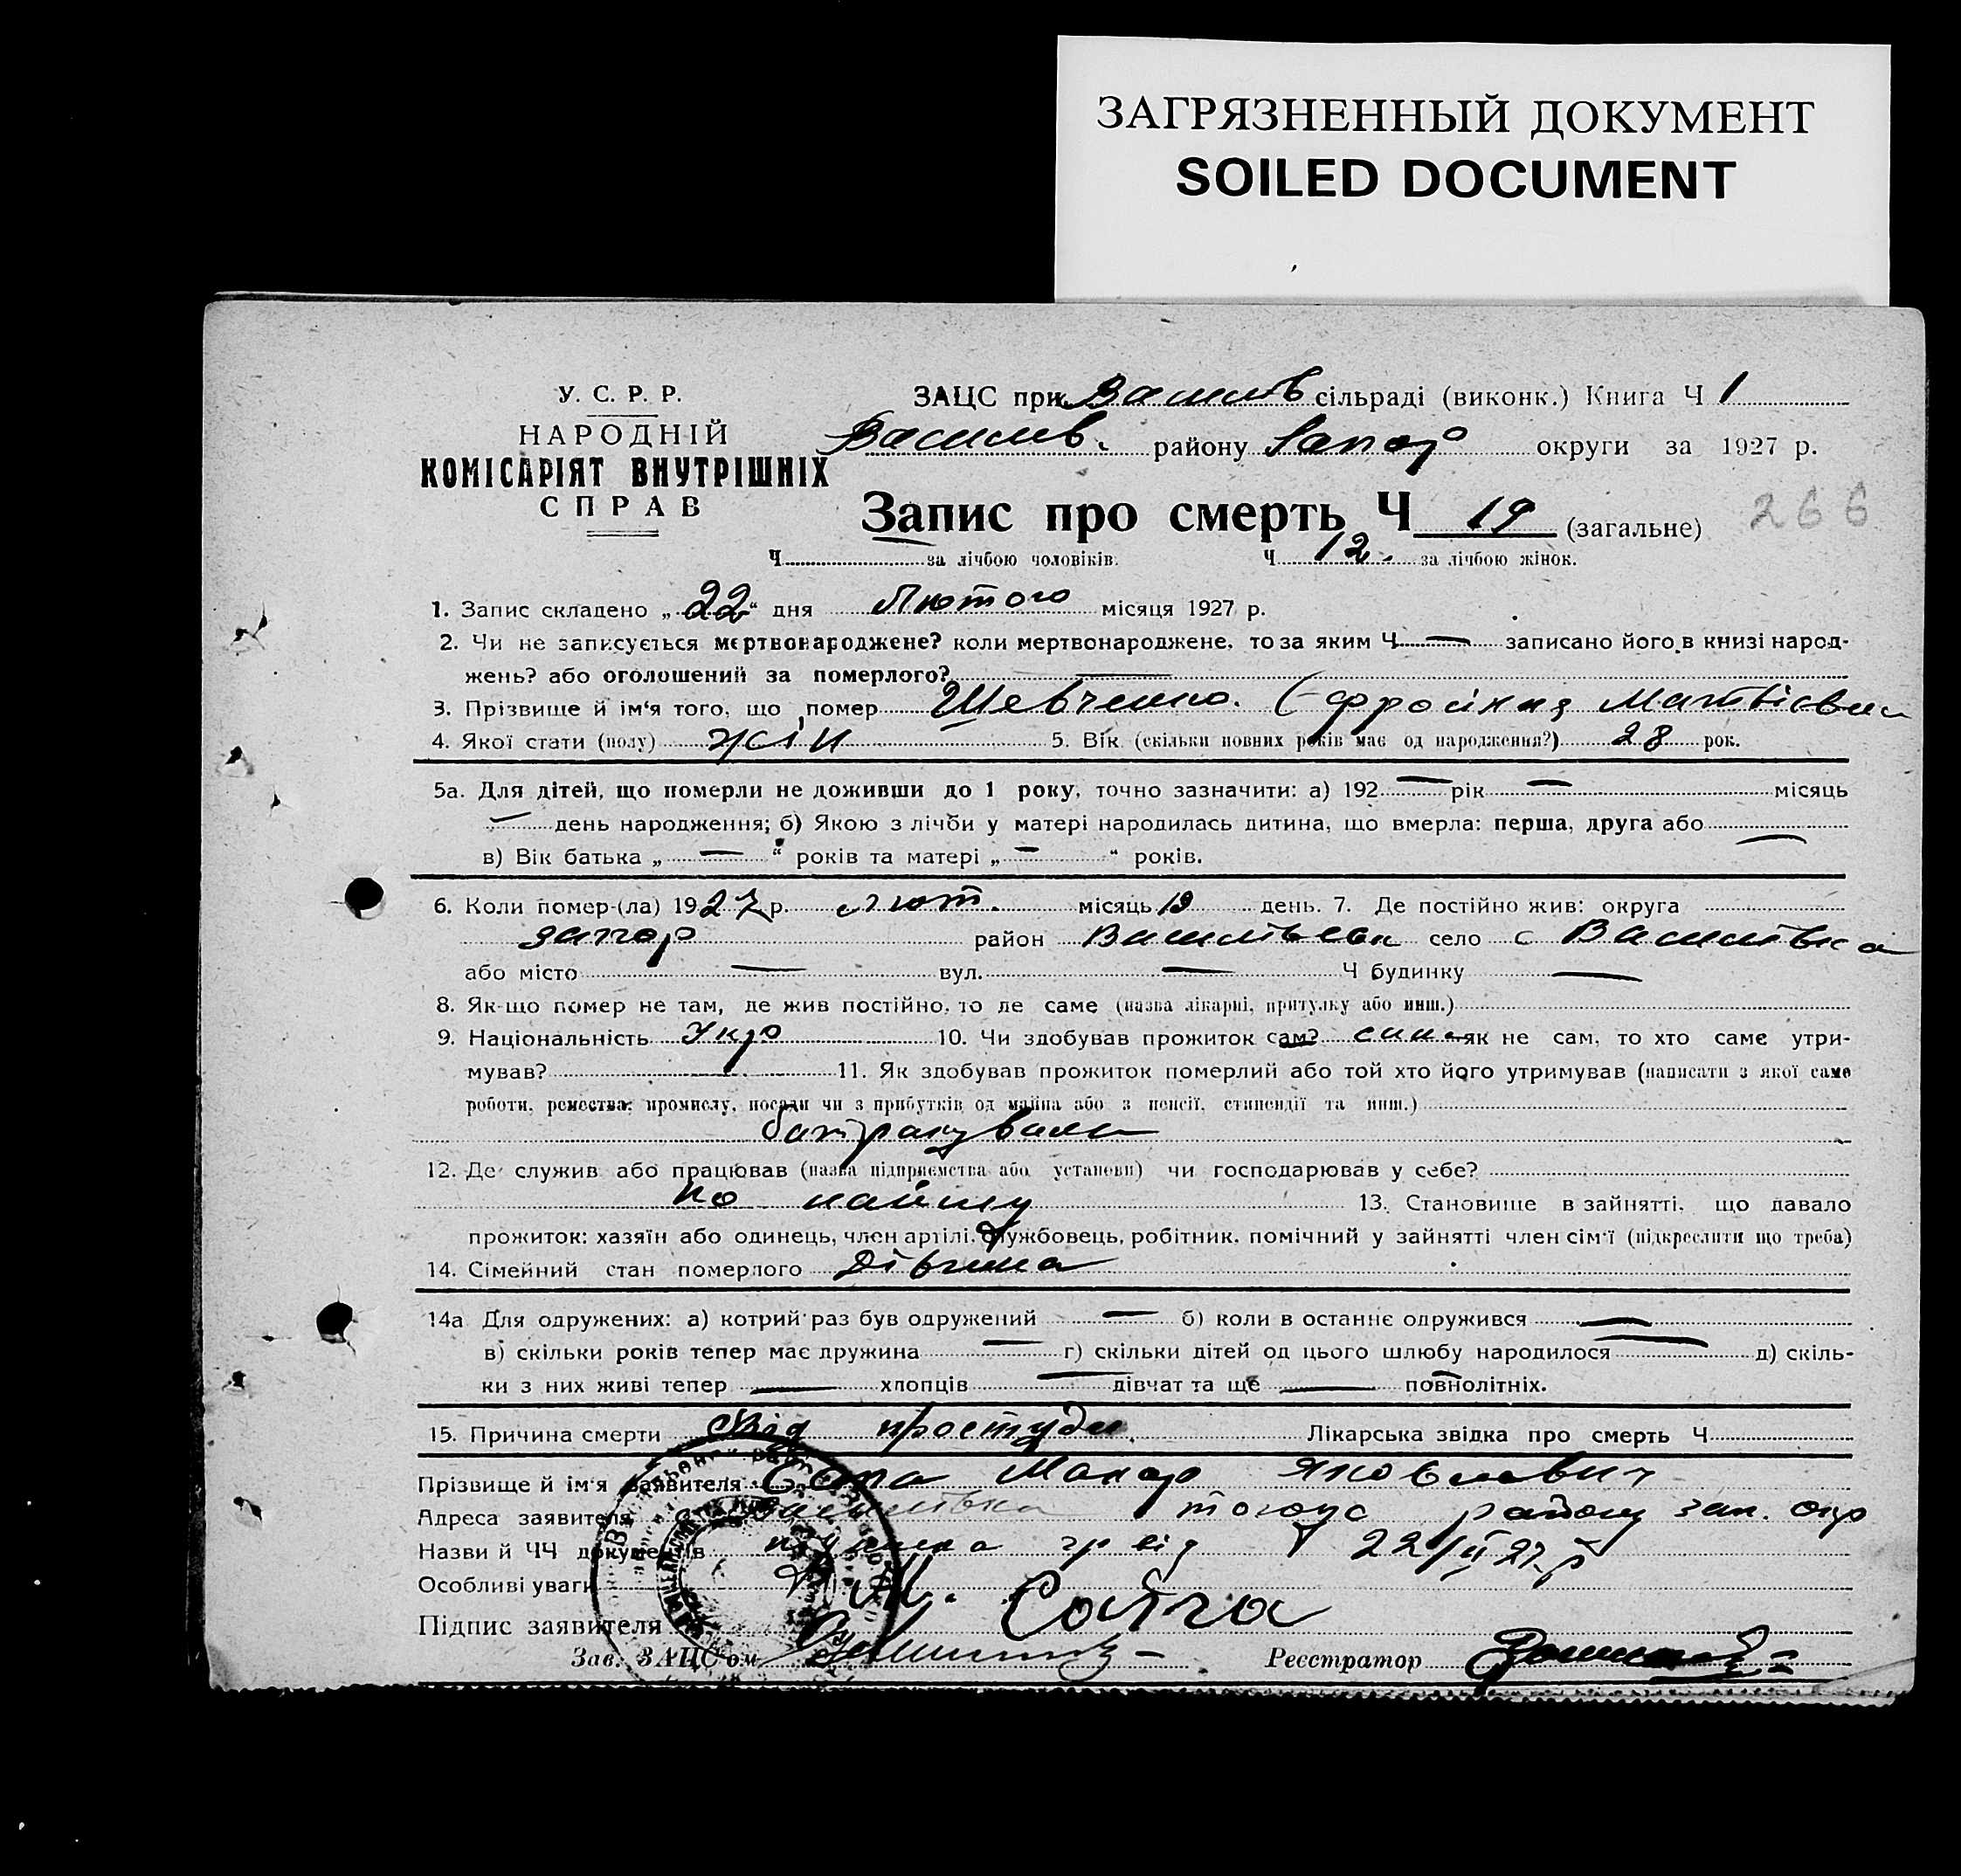 ЗАГРЯЗНЕННЫЙ ДОКУМЕНТ
SOILED DOCUMENT
У. С. Р. Р.
НАРОДНІЙ
КОМІСАРІЯТ ВНУТРІШНІХ
СПРАВ
ЗАЦС при Василів сільраді (виконк.) Книга Ч 1
Василів. району Запор округи за 1927 р.
Запис про смерть Ч 19 (загальне) 266
Ч за лічбою чоловіків. Ч 12. за лічбою жінок.
1. Запис складено „ 22 “ дня Лютого місяця 1927 р.
2. Чи не записується мертвонароджене? коли мертвонароджене, то за яким Ч — записано його в книзі народ-
жень? або оголошений за померлого? —
3. Прізвище й ім'я того, що помер Шевченко. Єфросинія Матвієвна
4. Якої стати (полу) жін 5. Вік (скільки повних років має од народження?) 28 рок.
5а. Для дітей, що померли не доживши до 1 року, точно зазначити: а) 192 — рік — місяць
— день народження; б) Якою з лічби у матері народилась дитина, що вмерла: перша, друга або —
в) Вік батька „ — “ років та матері „ — “ років.
6. Коли помер-(ла) 1927 р. лют. місяць 19 день. 7. Де постійно жив: округа
Запор район Василівськ село с Василівка
або місто — вул. — Ч будинку —
8. Як-що помер не там, де жив постійно, то де саме (назва лікарні, притулку або инш.)
9. Національність Укр 10. Чи здобував прожиток сам? як не сам, то хто саме утри-
мував? 11. Як здобував прожиток померлий або той хто його утримував (написати з якої саме
роботи, ремества, промислу, посади чи з прибутків од майна або з пенсії, стипендії та инш.)
батракувала
12. Де служив або працював (назва підприємства або установи) чи господарював у себе?
по найму 13. Становище в зайнятті, що давало
прожиток: хазяїн або одинець, член артілі, службовець, робітник, помічний у зайнятті член сім'ї (підкреслити що треба)
14. Сімейний стан померлого Дівчина
14а Для одружених: а) котрий раз був одружений — б) коли в останнє одружився —
в) скільки років тепер має дружина — г) скільки дітей од цього шлюбу народилося — д) скіль-
ки з них живі тепер — хлопців — дівчат та ще — повнолітніх.
15. Причина смерти Від простуди. Лікарська звідка про смерть Ч
Прізвище й ім'я заявителя Макар Яковлевич
Адреса заявителя с Василівка тогож району зап. окр
Назви й ЧЧ документів від 22/II 27 р
Особливі уваги
Підпис заявителя М.
Зав. ЗАЦС'ом Реєстратор